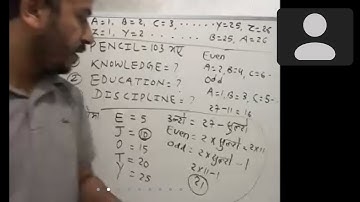 A=1, B=2, C=3, ....... Y=25, Z=26
Z=1, Y=2 B=25, A=26
PENCIL = 103
KNOWLEDGE = ?
② EDUCATION = ?
DISCIPLINE = ?
Even
A=2, B=4, C=6 -
Odd
A=1, B=3, C=5 -
27-11=16
E = 5
J = 10
O = 15
T = 20
Y = 25
= 27 -
Even = 2 × = 2×11
Odd = 2 × - 1
2×11-1
21